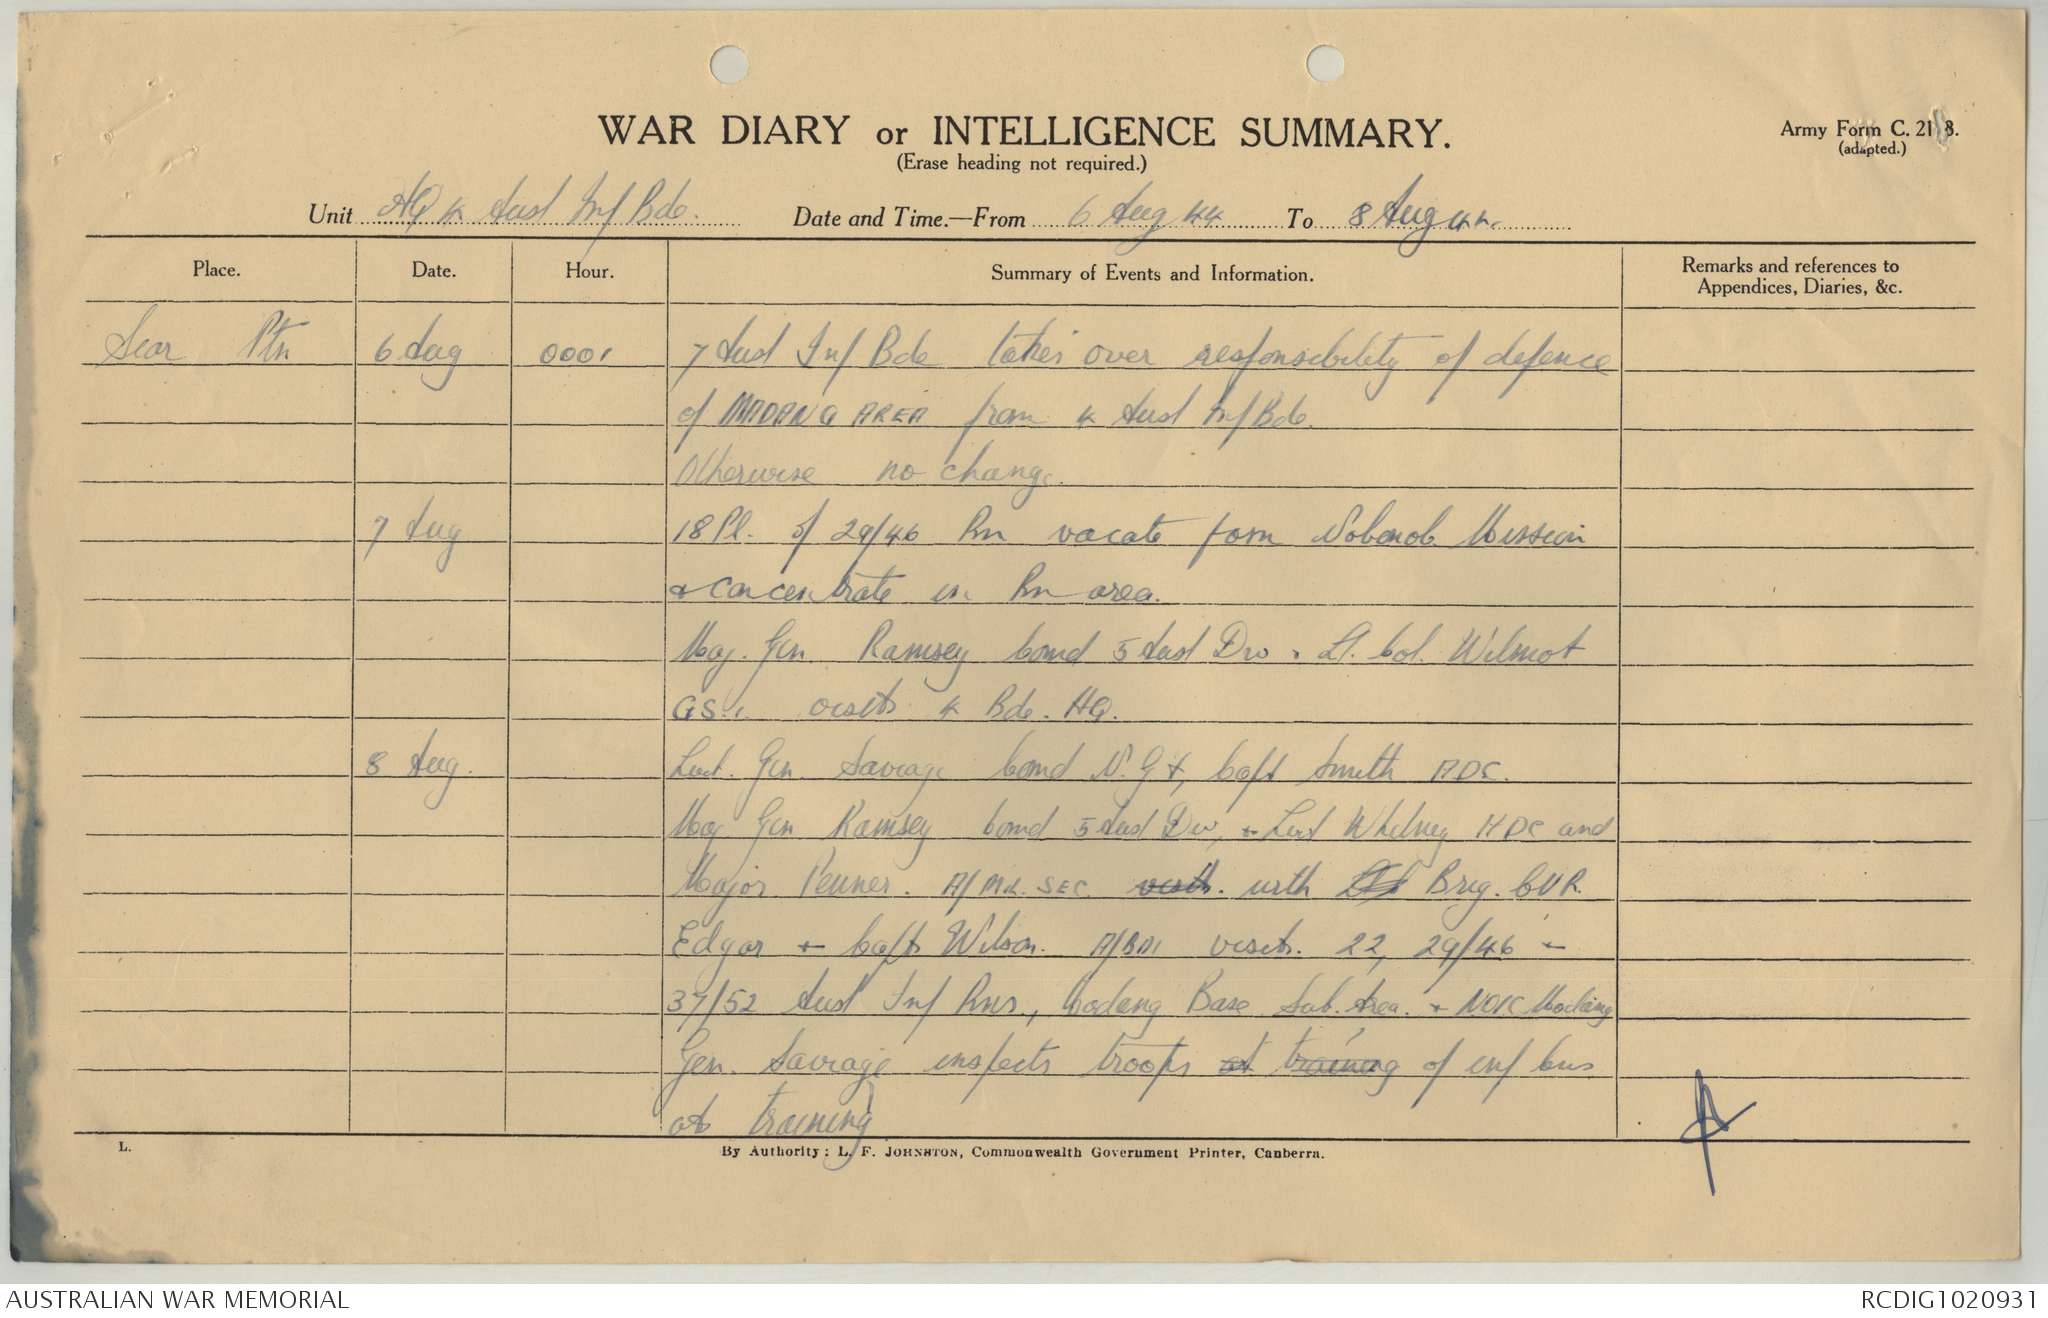 WAR DIARY or INTELLIGENCE SUMMARY.
(Erase heading not required.)
Army Form C. 2118.
(adapted.)
Unit HQ 4 Aust Inf Bde. Date and Time.—From 6 Aug 44 To 8 Aug 44.
Place. Date. Hour. Summary of Events and Information. Remarks and references to
Appendices, Diaries, &c.
Siar Ptn 6 Aug 0001 7 Aust Inf Bde takes over responsibility of defence
of MADANG AREA from 4 Aust Inf Bde.
Otherwise no change.
7 Aug 18 Pl. of 29/46 Bn vacate from Nobonob Mission
& concentrate in Bn area.
Maj. Gen Ramsey Comd 5 Aust Div & Lt. Col. Wilmot
GS.1 visits 4 Bde. HQ.
8 Aug. Lieut. Gen. Savige Comd N.G.F, Capt Smith ADC.
Maj Gen Ramsey Comd 5 Aust Div, & Lieut Whitney ADC and
Major Penner. A/Mil. SEC. visits. with Brig. CUR.
Edgar & Capt Wilson. A/BM visits. 22, 29/46 &
37/52 Aust Inf Bns, Madang Base Sub. Area. & NOIC Madang
Gen. Savige inspects troops at training of inf bns
at training
L. By Authority: L. F. JOHNSTON, Commonwealth Government Printer, Canberra.
AUSTRALIAN WAR MEMORIAL RCDIG1020931